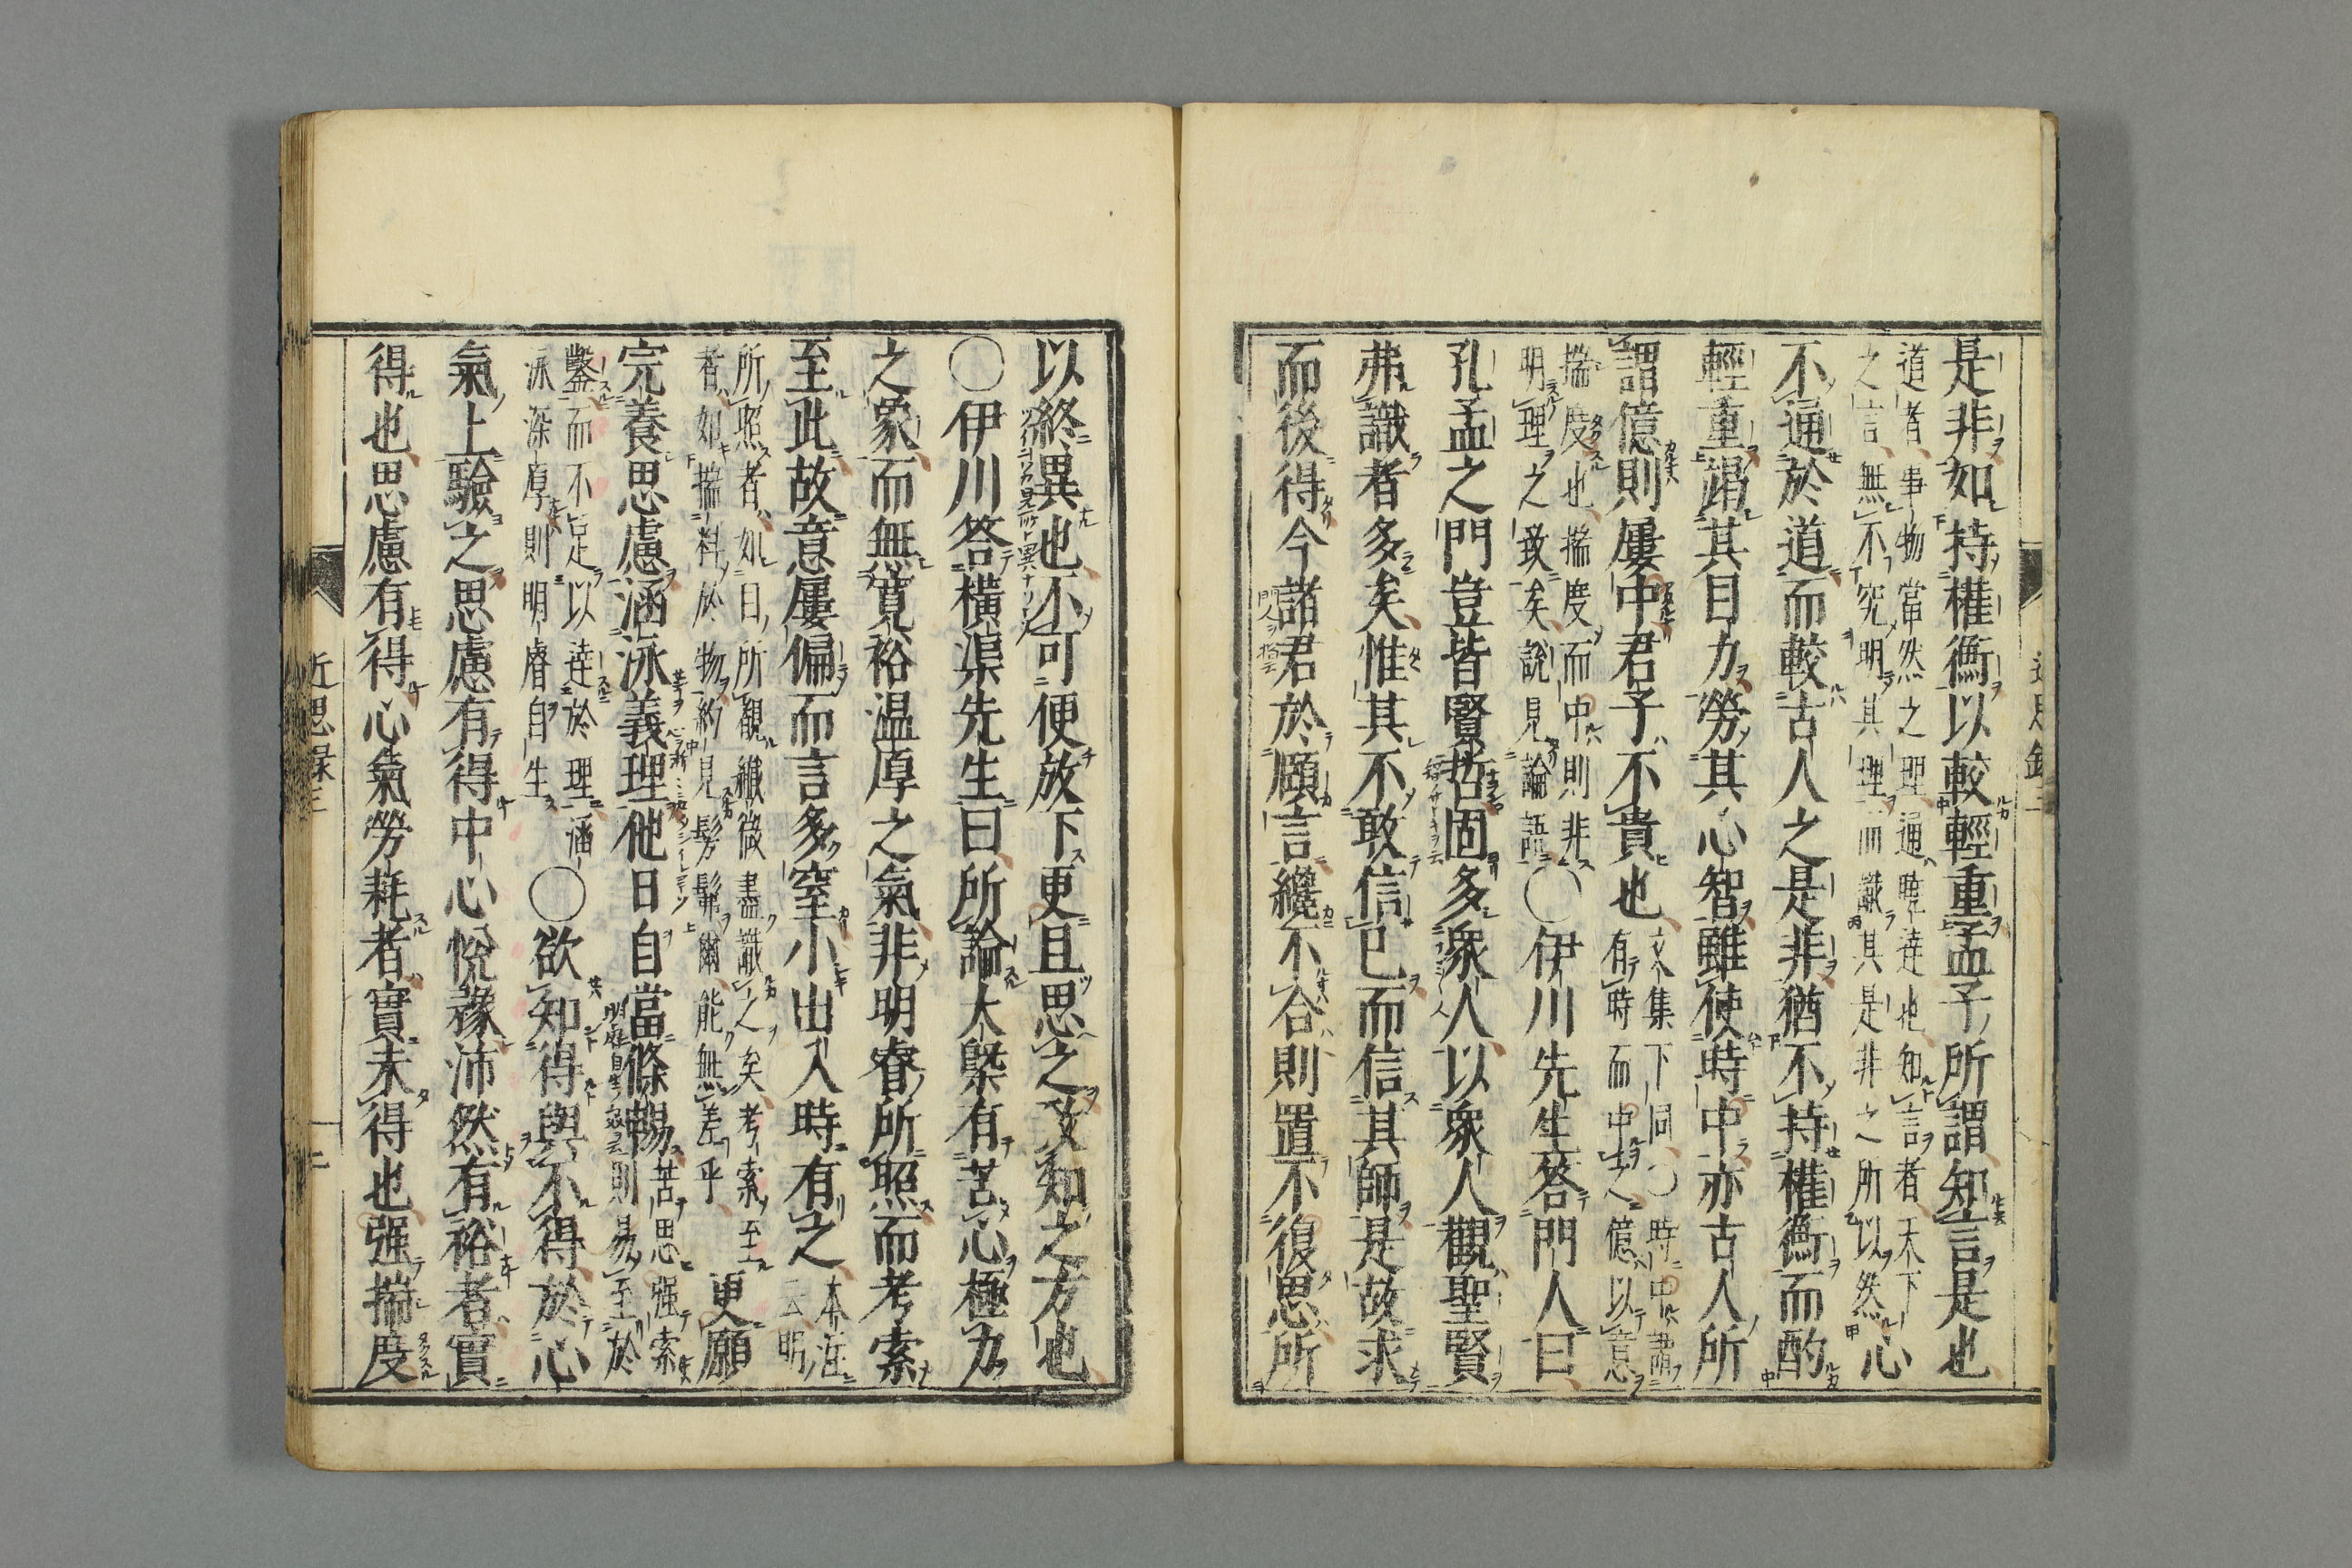 是非如持權衡以較輕重孟子所謂知言是也
道者事物當然之理通曉達也知言者天下
之言無不究明其理而識其是非之所以然 心
不通於道而較古人之是非猶不持權衡而酌
輕重竭其目力勞其心智雖使時中亦古人所
謂億則屢中君子不貴也 文集下同○時中謂
有時而中之億以意
揣度也揣度而中則非
明理之致矣說見論語 ○伊川先生答門人曰
孔孟之門豈皆賢哲固多衆人以衆人觀聖賢
弗識者多矣惟其不敢信己而信其師是故求
而後得今諸君於頤言纔不合則置不復思所
以終異也不可便放下更且思之致知之方也
○伊川答橫渠先生曰所論大槩有苦心極力
之象而無寬裕温厚之氣非明睿所照而考索
至此故意屢偏而言多窒小出入時有之 本注
云明
所照者如目所觀纖微盡識之矣考索至
者如揣料於物約見髣髴爾能無差乎 更願
完養思慮涵泳義理他日自當條暢 苦思强索
則易至於
鑿而不足以達於理涵
泳深厚則明睿自生 ○欲知得與不得於心
氣上驗之思慮有得中心悅豫沛然有裕者實
得也思慮有得心氣勞耗者實未得也强揣度
近思録三
二